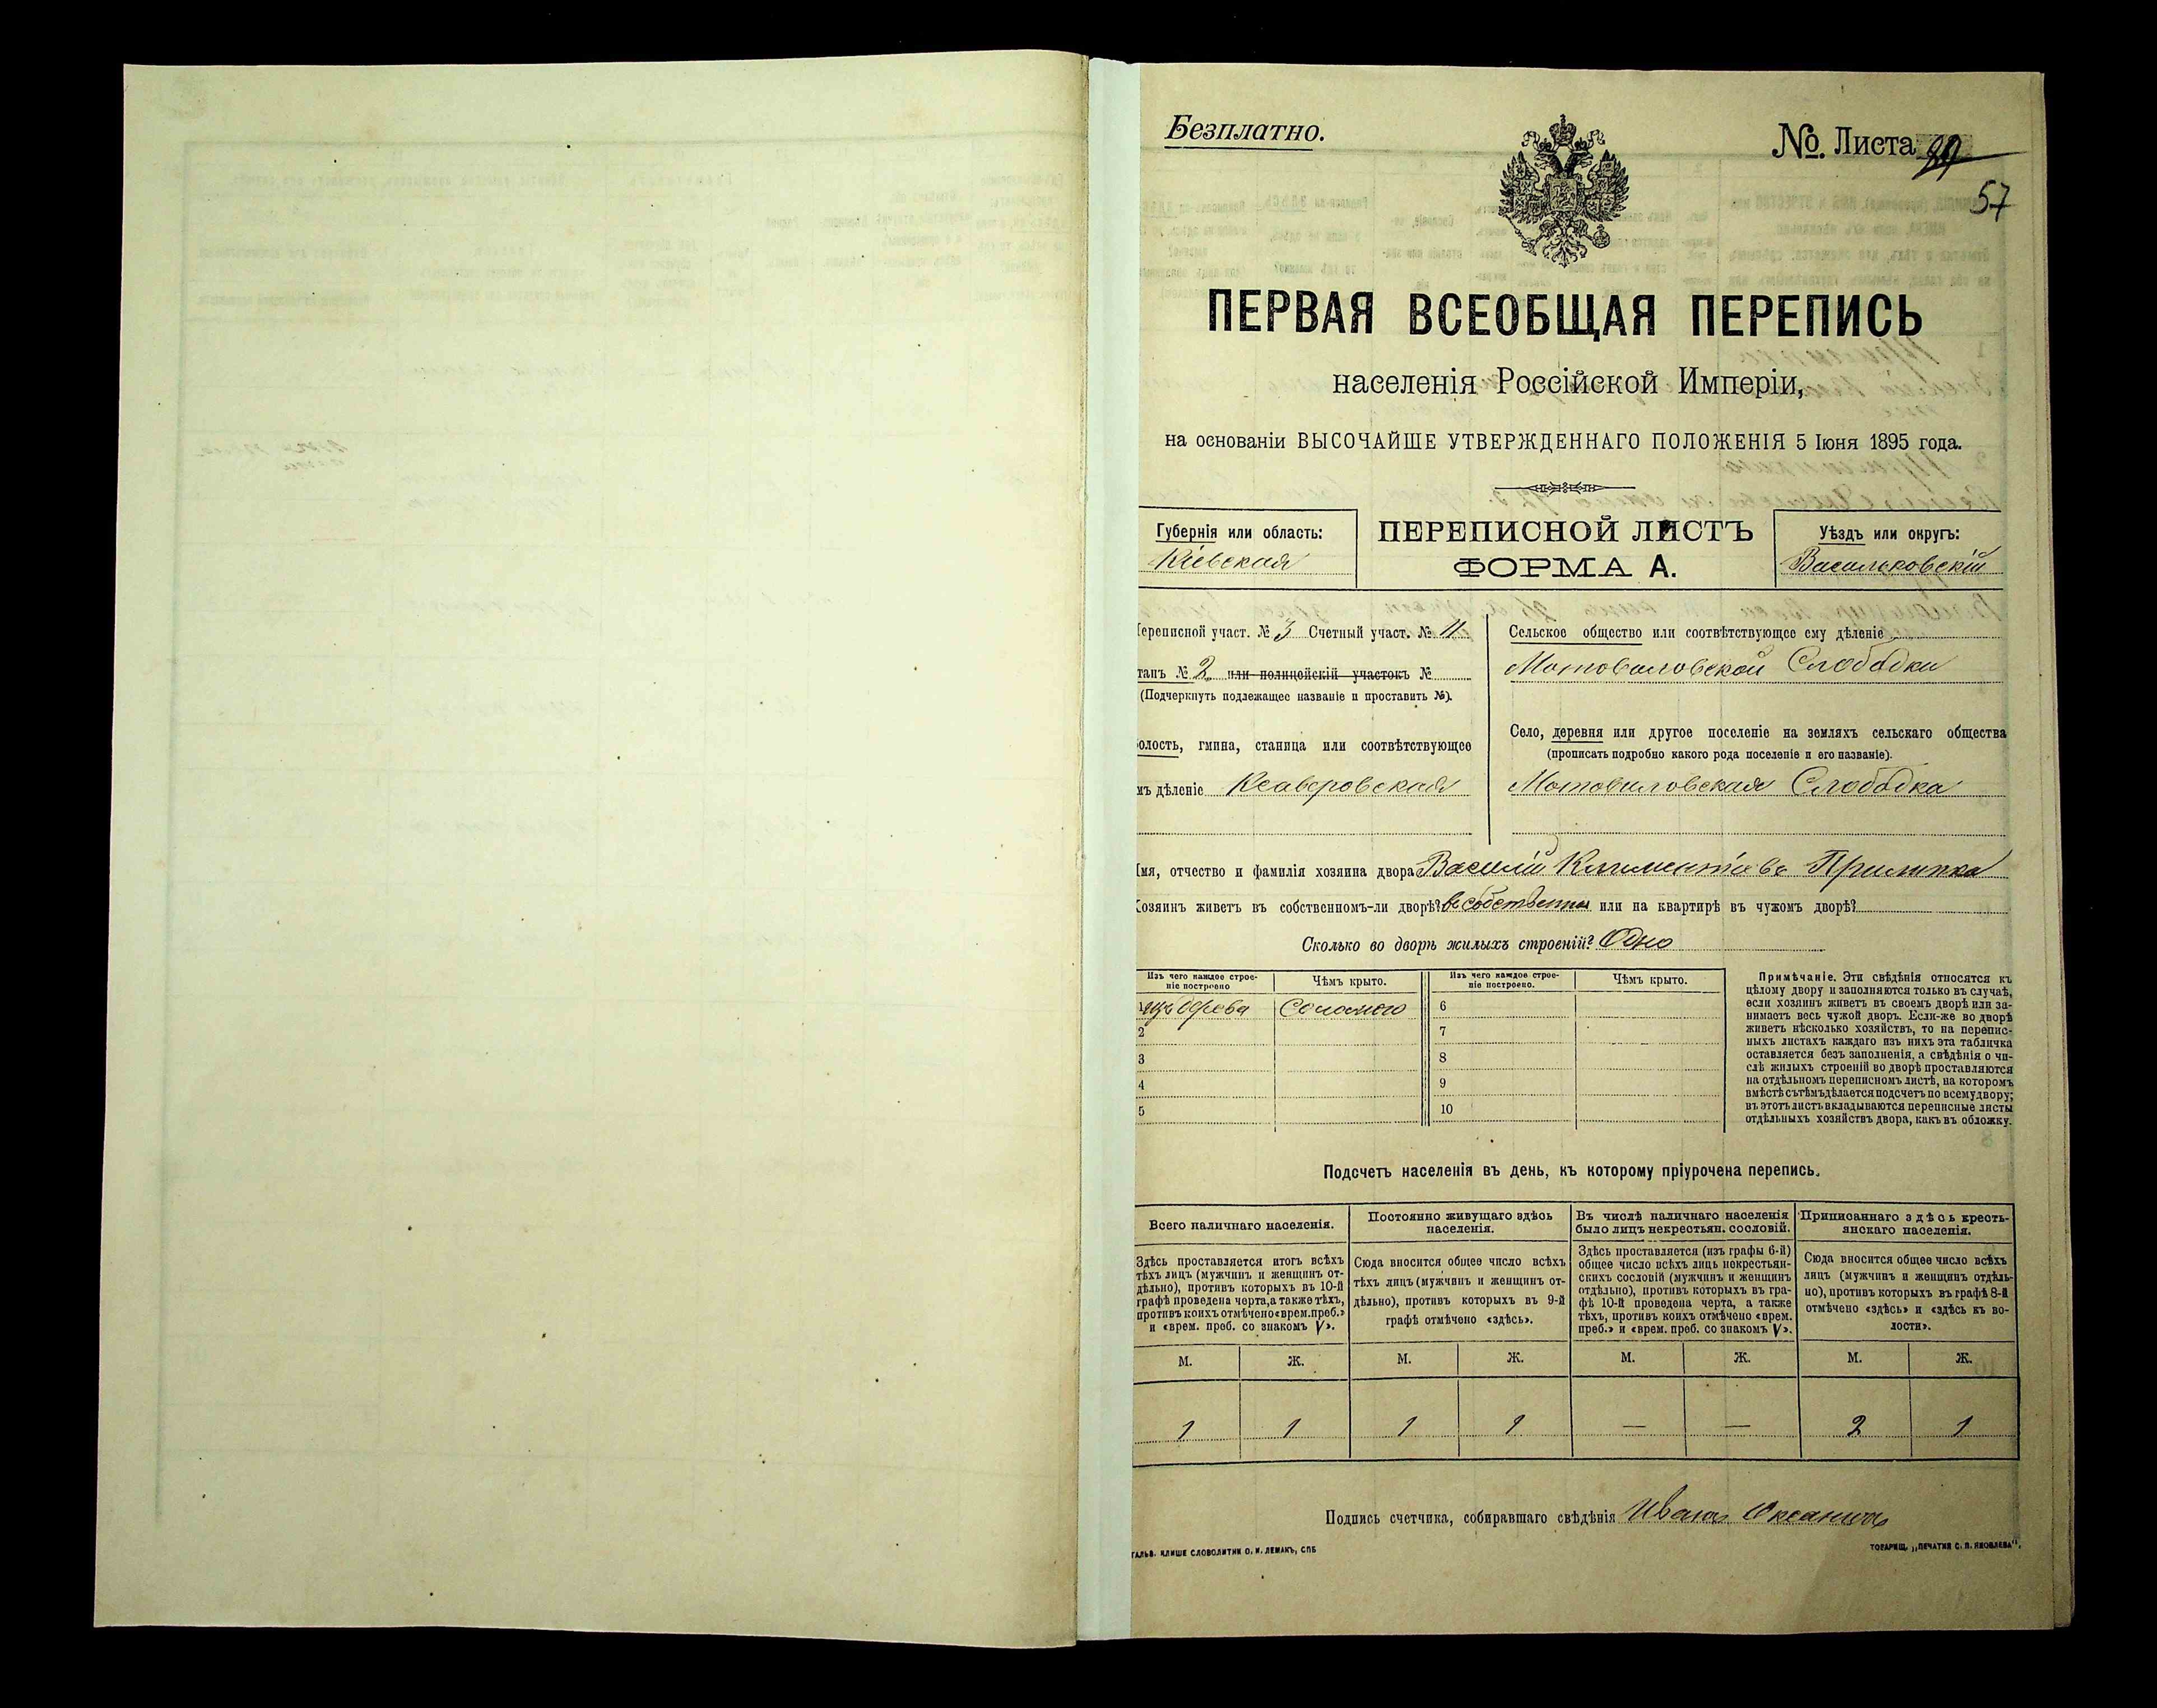 Безплатно.
№ Листа
57
ПЕРВАЯ ВСЕОБЩАЯ ПЕРЕПИСЬ
населенія Россійской Имперіи,
на основаніи ВЫСОЧАЙШЕ УТВЕРЖДЕННАГО ПОЛОЖЕНІЯ 5 Іюня 1895 года.
Губернія или область:
Кіевская
ПЕРЕПИСНОЙ ЛИСТЪ
ФОРМА А.
Уѣздъ или округъ:
Васильковскій
ереписной участ. № 3 Счетный участ. № 4
танъ № 2 или полицейскій участокъ №
(Подчеркнуть подлежащее названіе и проставить №).
олость, гмина, станица или соотвѣтствующее
мъ дѣленіе Ксаверовская
Сельское общество или соотвѣтствующее ему дѣленіе
Мотовиловской Слободки
Село, деревня или другое поселеніе на земляхъ сельскаго общества
(прописать подробно какого рода поселеніе и его названіе).
Мотовиловская Слободка
Имя, отчество и фамилія хозяина двора Василій Климентіевъ Прилипка
Хозяинъ живетъ въ собственномъ-ли дворѣ? или на квартирѣ въ чужомъ дворѣ?
Сколько во дворѣ жилыхъ строеній? Одно
Изъ чего каждое строе-
ніе построено
Чѣмъ крыто.
Изъ чего каждое строе-
ніе построено.
Чѣмъ крыто.
1 изъ дерева Соломою 6
2 7
3 8
4 9
5 10
Примѣчаніе. Эти свѣдѣнія относятся къ
цѣлому двору и заполняются только въ случаѣ,
если хозяинъ живетъ въ своемъ дворѣ или за-
нимаетъ весь чужой дворъ. Если-же во дворѣ
живетъ нѣсколько хозяйствъ, то на перепис-
ныхъ листахъ каждаго изъ нихъ эта табличка
оставляется безъ заполненія, а свѣдѣнія о чи-
слѣ жилыхъ строеній во дворѣ проставляются
на отдѣльномъ переписномъ листѣ, на которомъ
вмѣстѣ съ тѣмъ дѣлается подсчетъ по всему двору;
въ этотъ листъ вкладываются переписные листы
отдѣльныхъ хозяйствъ двора, какъ въ обложку.
Подсчетъ населенія въ день, къ которому пріурочена перепись.
Всего наличнаго населенія.
Здѣсь проставляется итогъ всѣхъ
тѣхъ лицъ (мужчинъ и женщинъ от-
дѣльно), противъ которыхъ въ 10-й
графѣ проведена черта, а также тѣхъ,
противъ коихъ отмѣчено «врем. преб.»
и «врем. преб. со знакомъ V».
Постоянно живущаго здѣсь
населенія.
Сюда вносится общее число всѣхъ
тѣхъ лицъ (мужчинъ и женщинъ от-
дѣльно), противъ которыхъ въ 9-й
графѣ отмѣчено «здѣсь».
Въ числѣ наличнаго населенія
было лицъ некрестьян. сословій.
Здѣсь проставляется (изъ графы 6-й)
общее число всѣхъ лицъ некрестьян-
скихъ сословій (мужчинъ и женщинъ
отдѣльно), противъ которыхъ въ гра-
фѣ 10-й проведена черта, а также
тѣхъ, противъ коихъ отмѣчено «врем.
преб.» и «врем. преб. со знакомъ V».
Приписаннаго здѣсь кресть-
янскаго населенія.
Сюда вносится общее число всѣхъ
лицъ (мужчинъ и женщинъ отдѣль-
но), противъ которыхъ въ графѣ 8-й
отмѣчено «здѣсь» и «здѣсь къ во-
лости».
М. Ж. М. Ж. М. Ж. М. Ж.
1 1 1 1 — — 2 1
Подпись счетчика, собиравшаго свѣдѣнія
ГАЛЬВ. КЛИШЕ СЛОВОЛИТНИ О. И. ЛЕМАНЪ, СПБ
ТОВАРИЩ. „ПЕЧАТНЯ С. П. ЯКОВЛЕВА“.